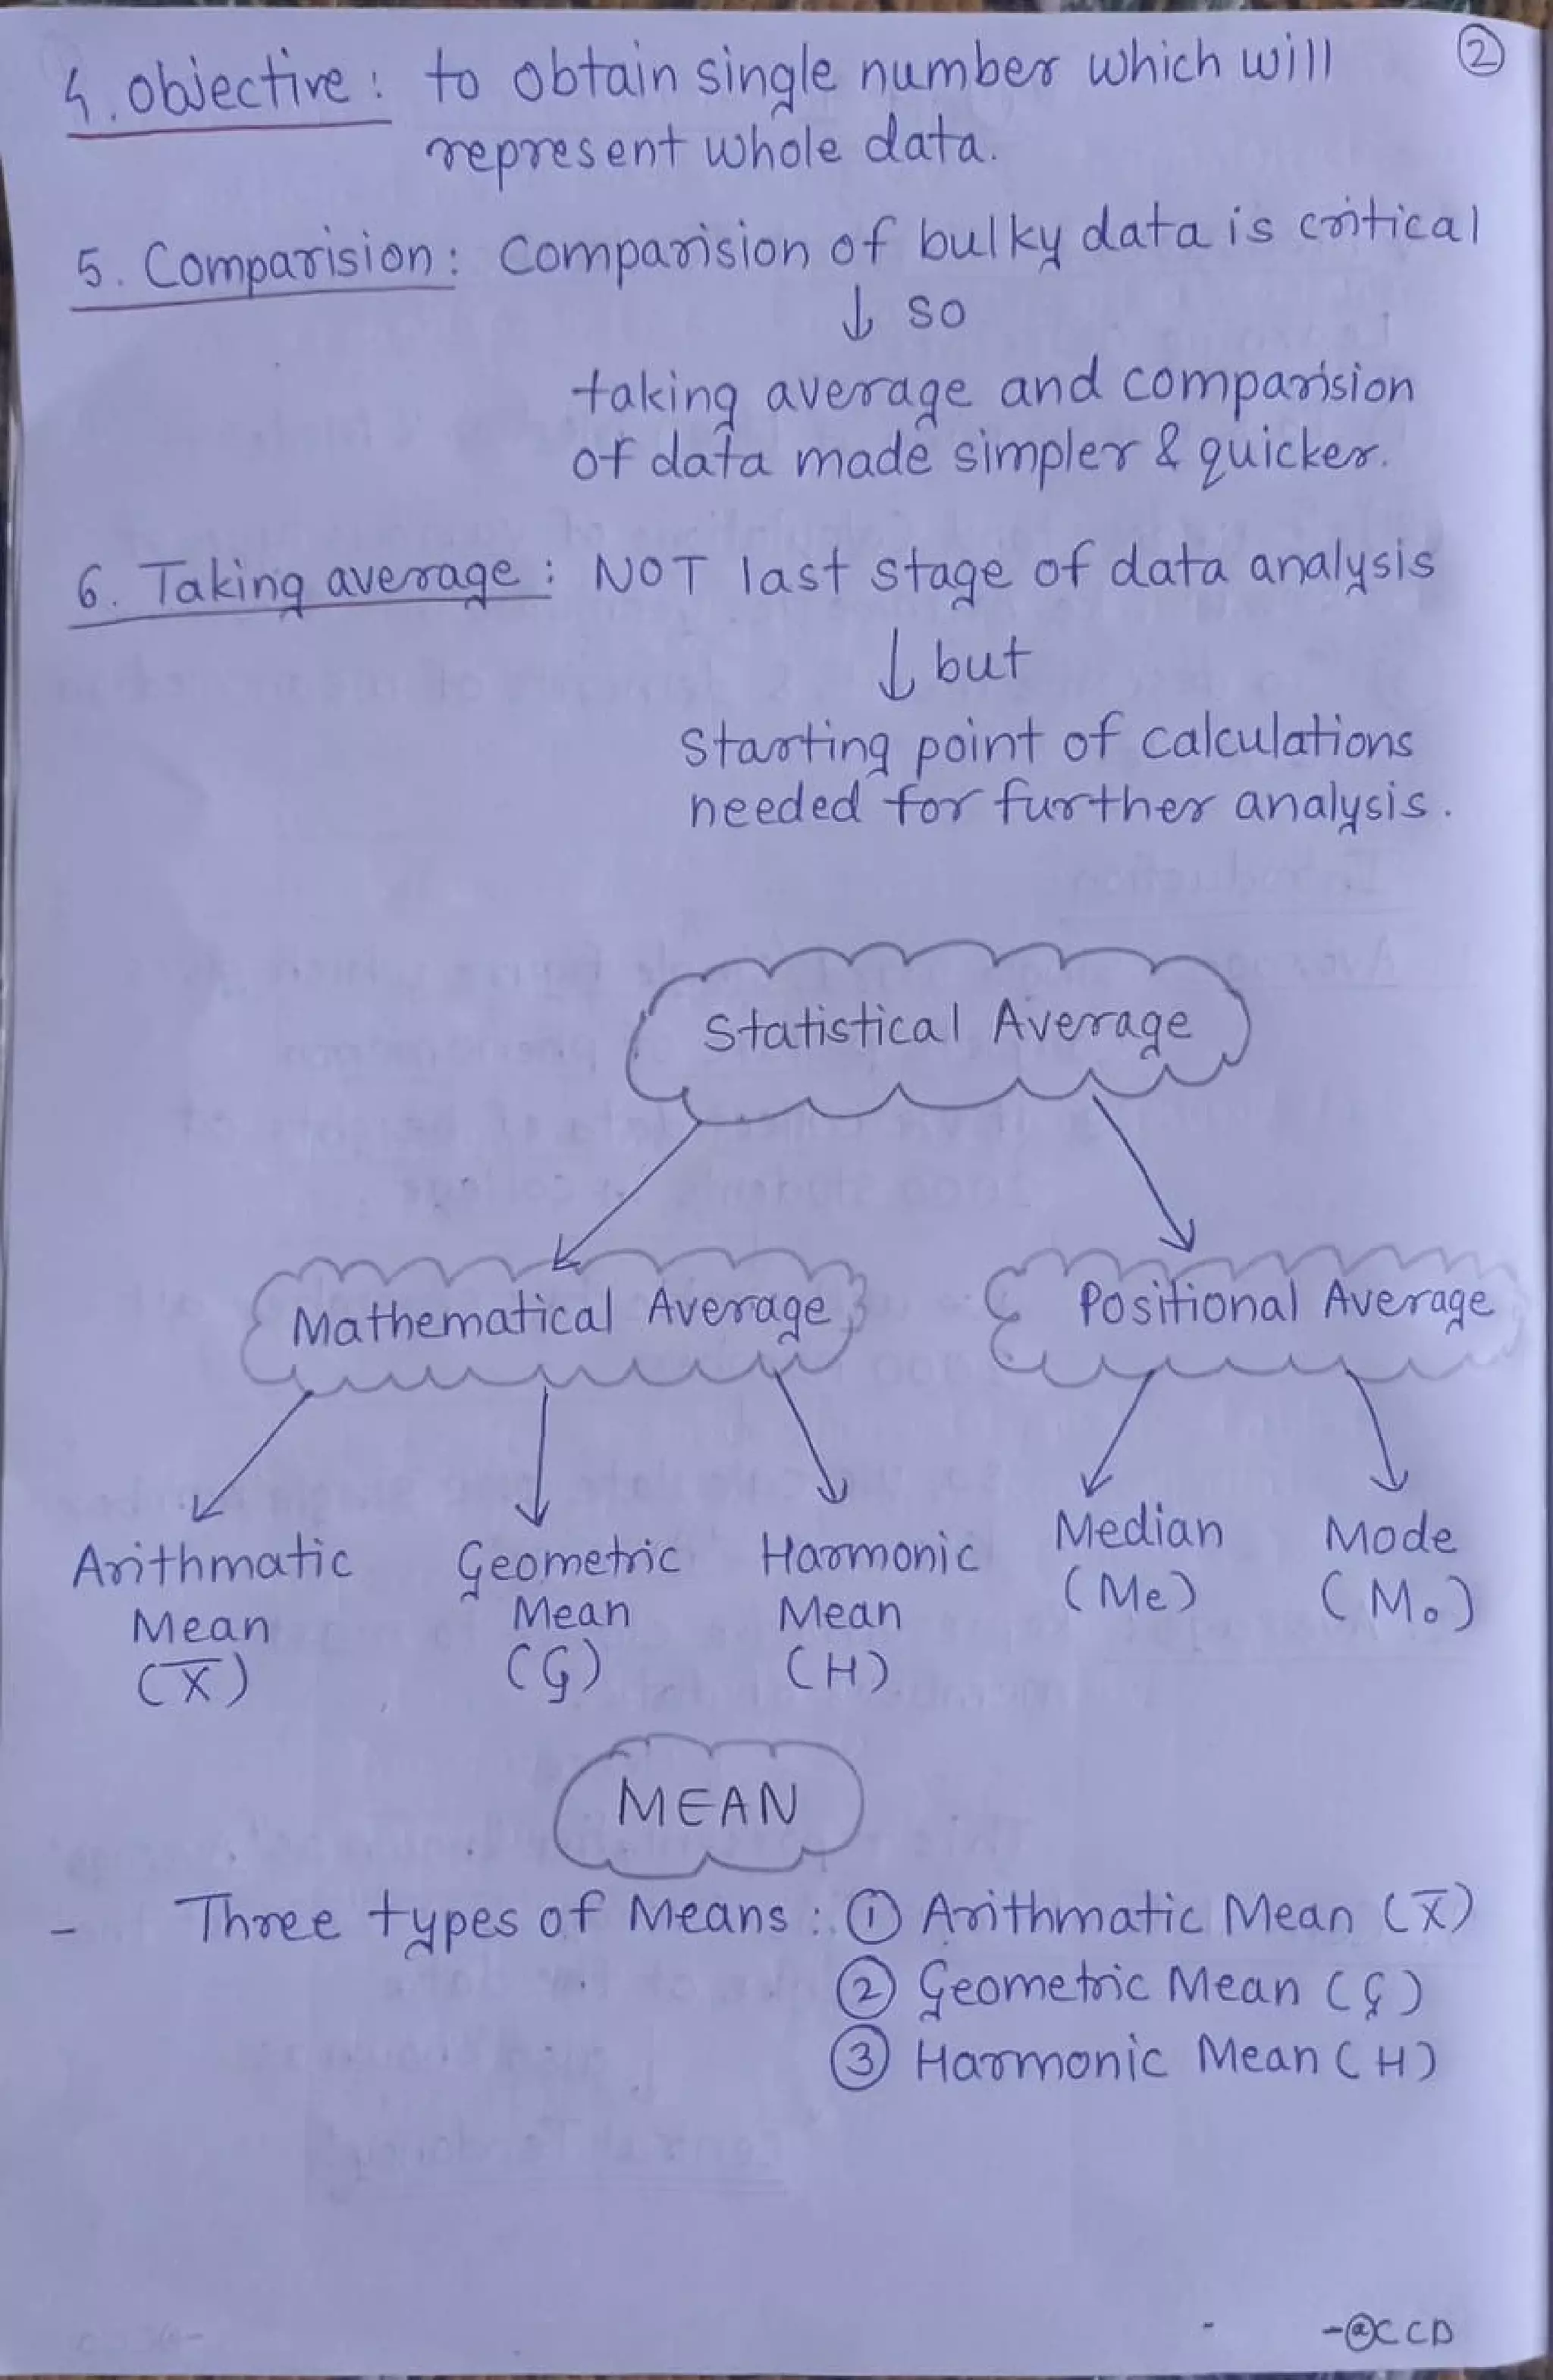 ②
4. Objective : to obtain single number which will
represent whole data.
5. Comparision : Comparision of bulky data is critical
↓ so
taking average and comparision
of data made simpler & quicker.
6. Taking average : NOT last stage of data analysis
↓ but
Starting point of calculations
needed for further analysis.
Statistical Average
Mathematical Average Positional Average
Arithmatic Geometric Harmonic Median Mode
Mean Mean Mean (Me) (Mo)
(X̅) (G) (H)
MEAN
- Three types of Means : ① Arithmatic Mean (X̅)
② Geometric Mean (G)
③ Harmonic Mean (H)
-@CCD